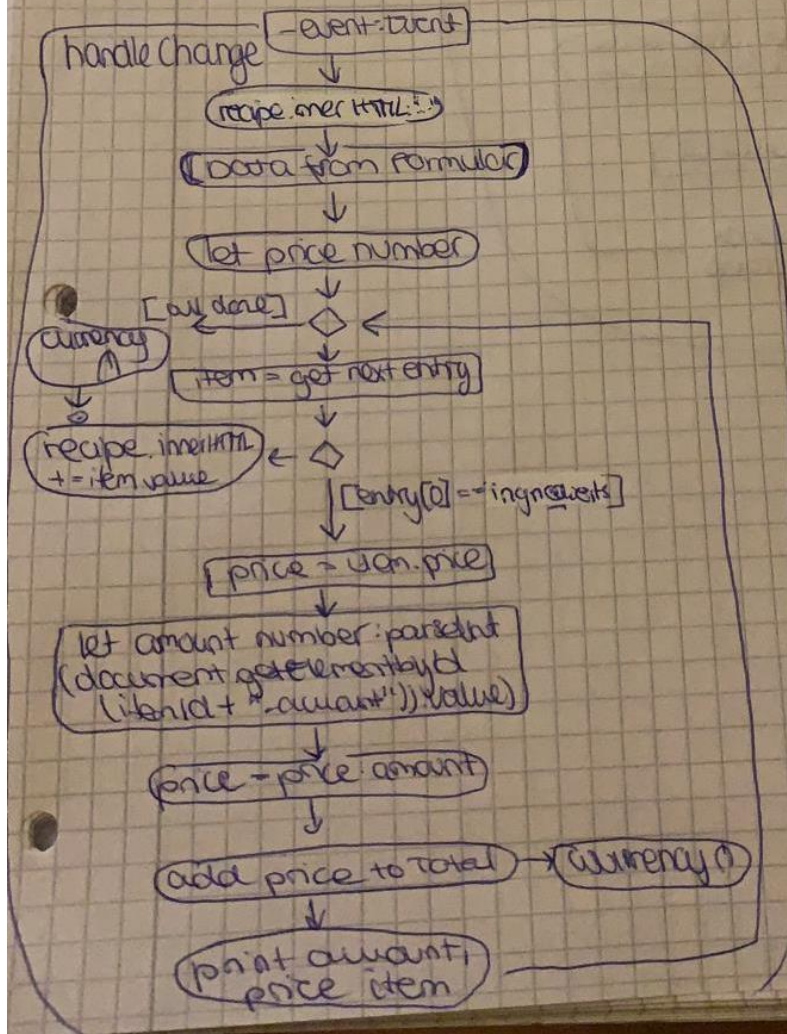 -event:Event
handleChange
recipe.inner HTML:""
Data from Formular
let price number
[all done]
currency()
item = get next entry
recipe.innerHTML
+=item.value
[entry[0]==
price = item.price
let amount number:parseInt
(document.getElementbyId
(itemId + "-amount")).value)
price = price·amount
add price to Total
currency()
print amount,
price item